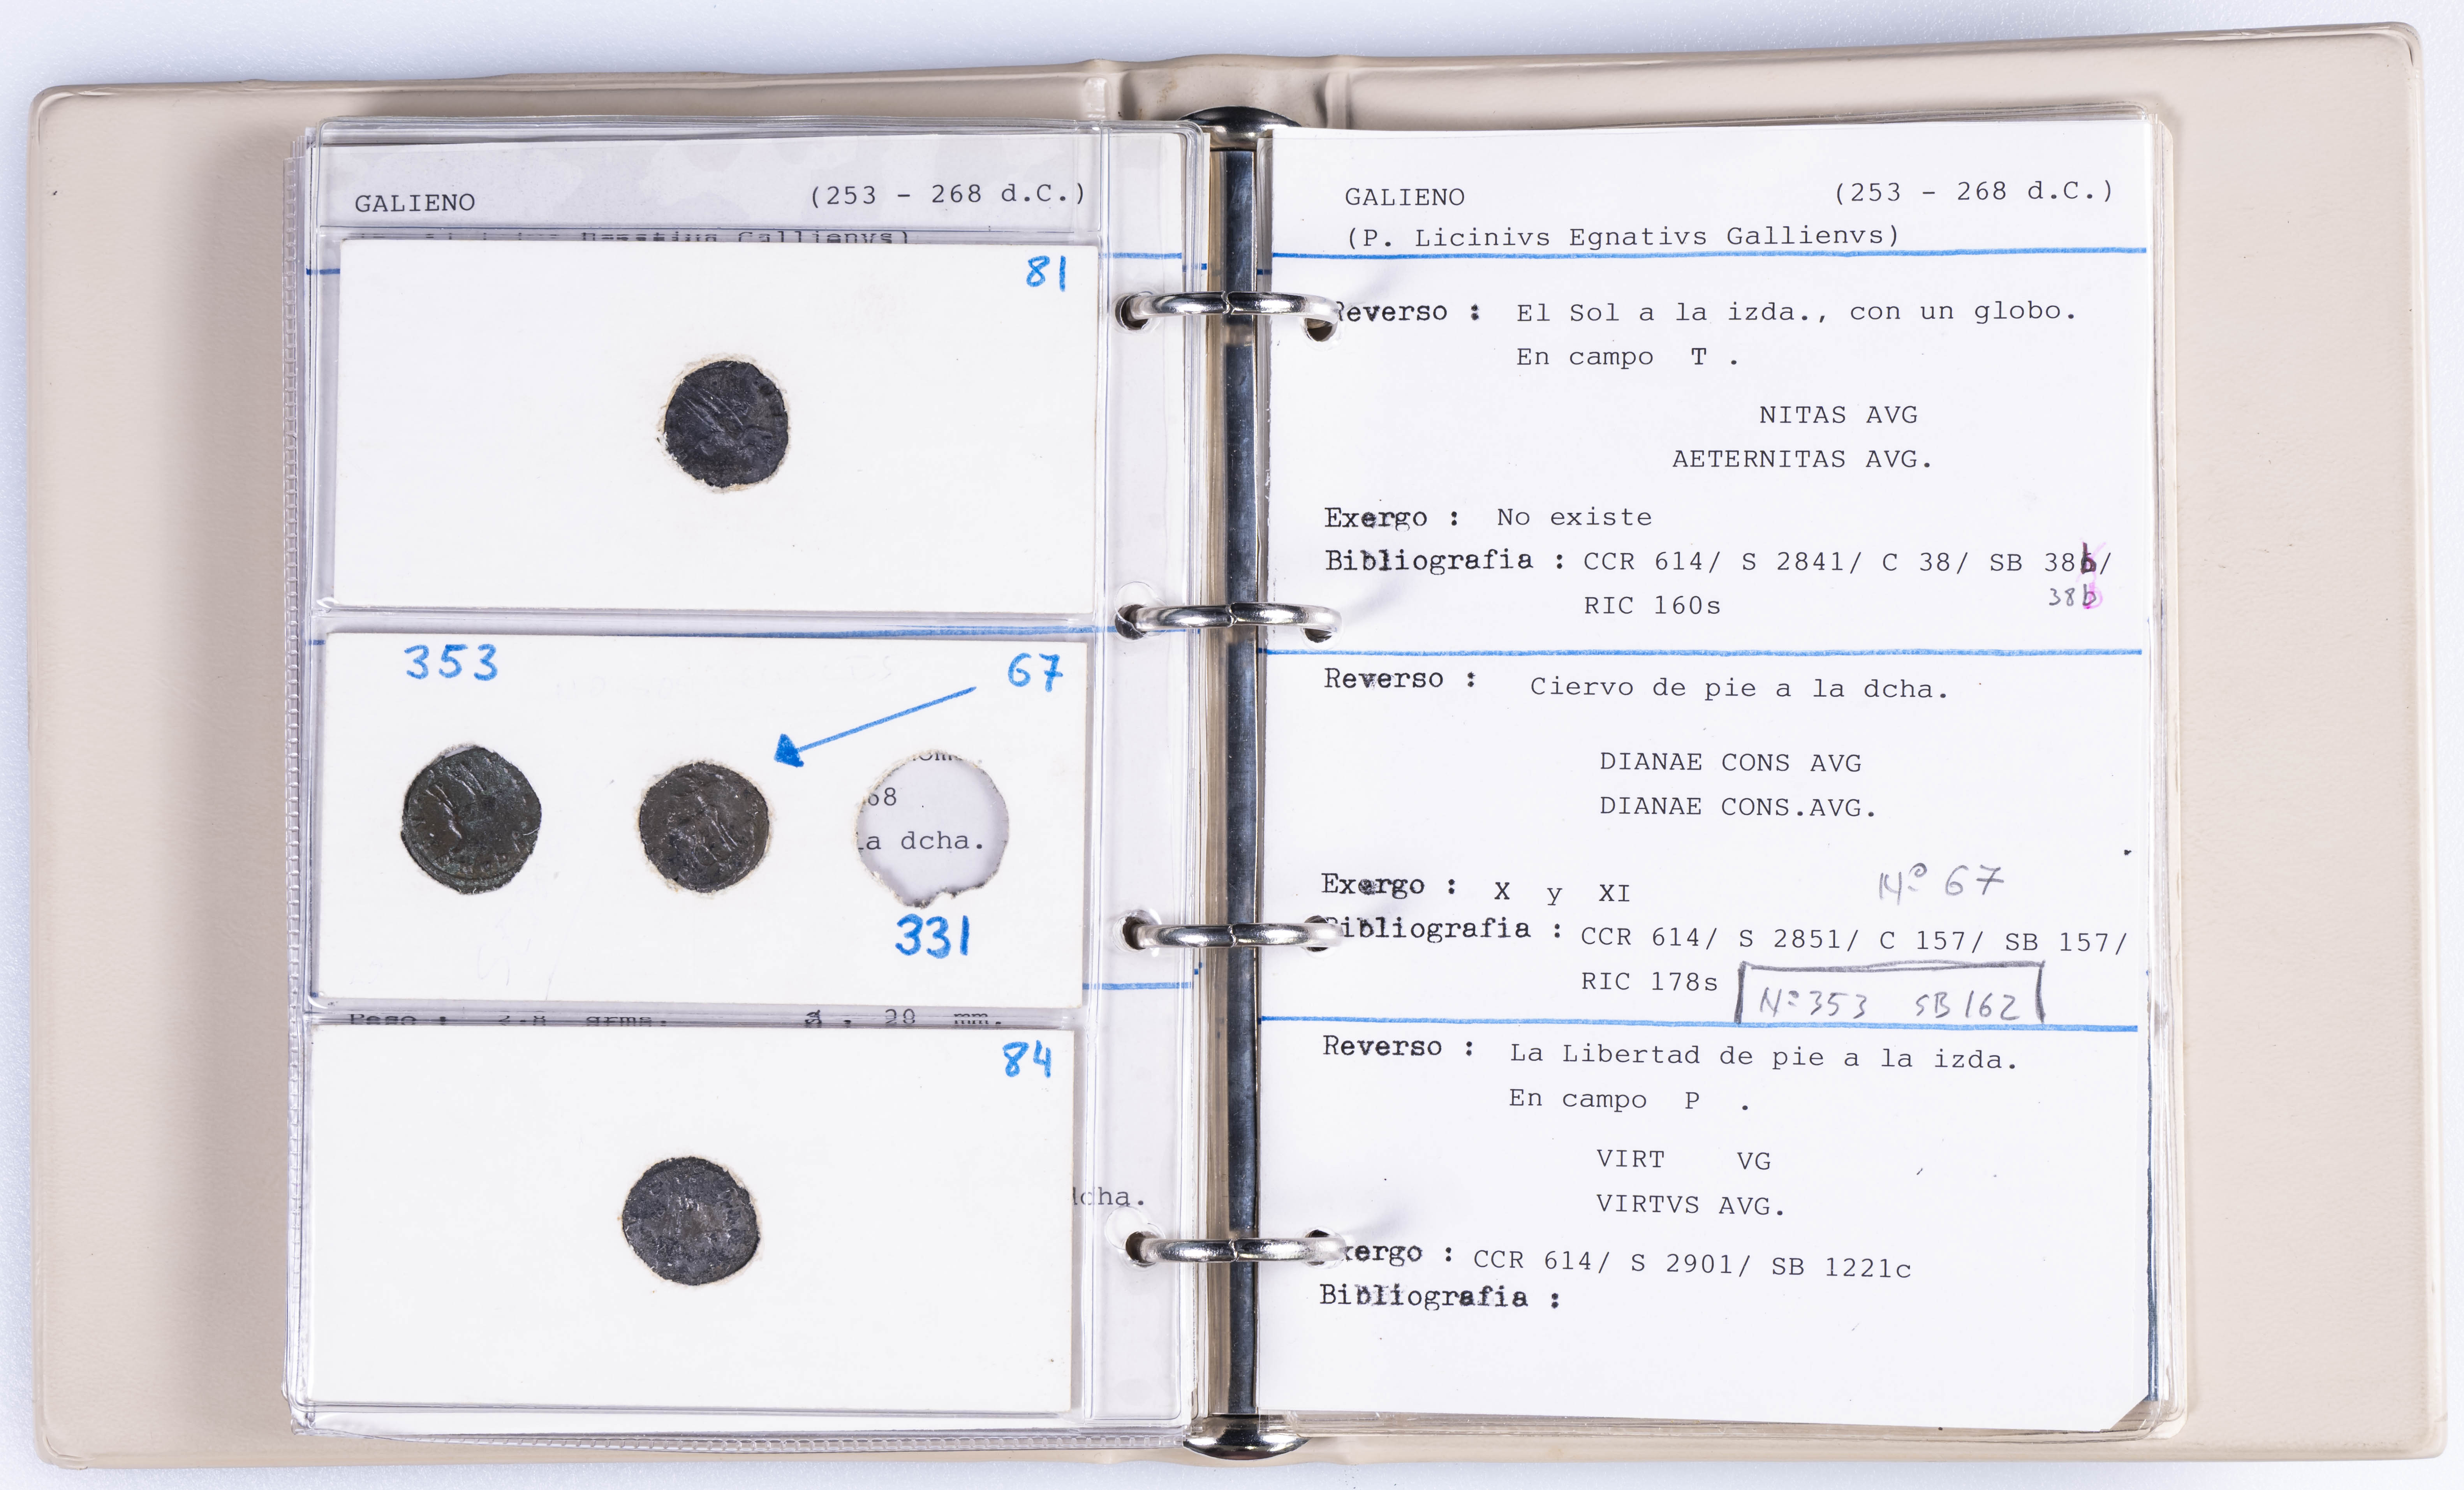 GALIENO (253 - 268 d.C.)
Gallienvs)
81
353 67
68
la dcha.
331
Peso : 2.8 grms. 20 mm.
84
dcha.
GALIENO (253 - 268 d.C.)
(P. Licinivs Egnativs Gallienvs)
Reverso : El Sol a la izda., con un globo.
En campo T .
NITAS AVG
AETERNITAS AVG.
Exergo : No existe
Bibliografia : CCR 614/ S 2841/ C 38/ SB 38b/
38b
RIC 160s
Reverso : Ciervo de pie a la dcha.
DIANAE CONS AVG
DIANAE CONS.AVG.
Nº 67
Exergo : X y XI
Bibliografia : CCR 614/ S 2851/ C 157/ SB 157/
RIC 178s Nº 353 SB 162
Reverso : La Libertad de pie a la izda.
En campo P .
VIRT VG
VIRTVS AVG.
Exergo : CCR 614/ S 2901/ SB 1221c
Bibliografia :